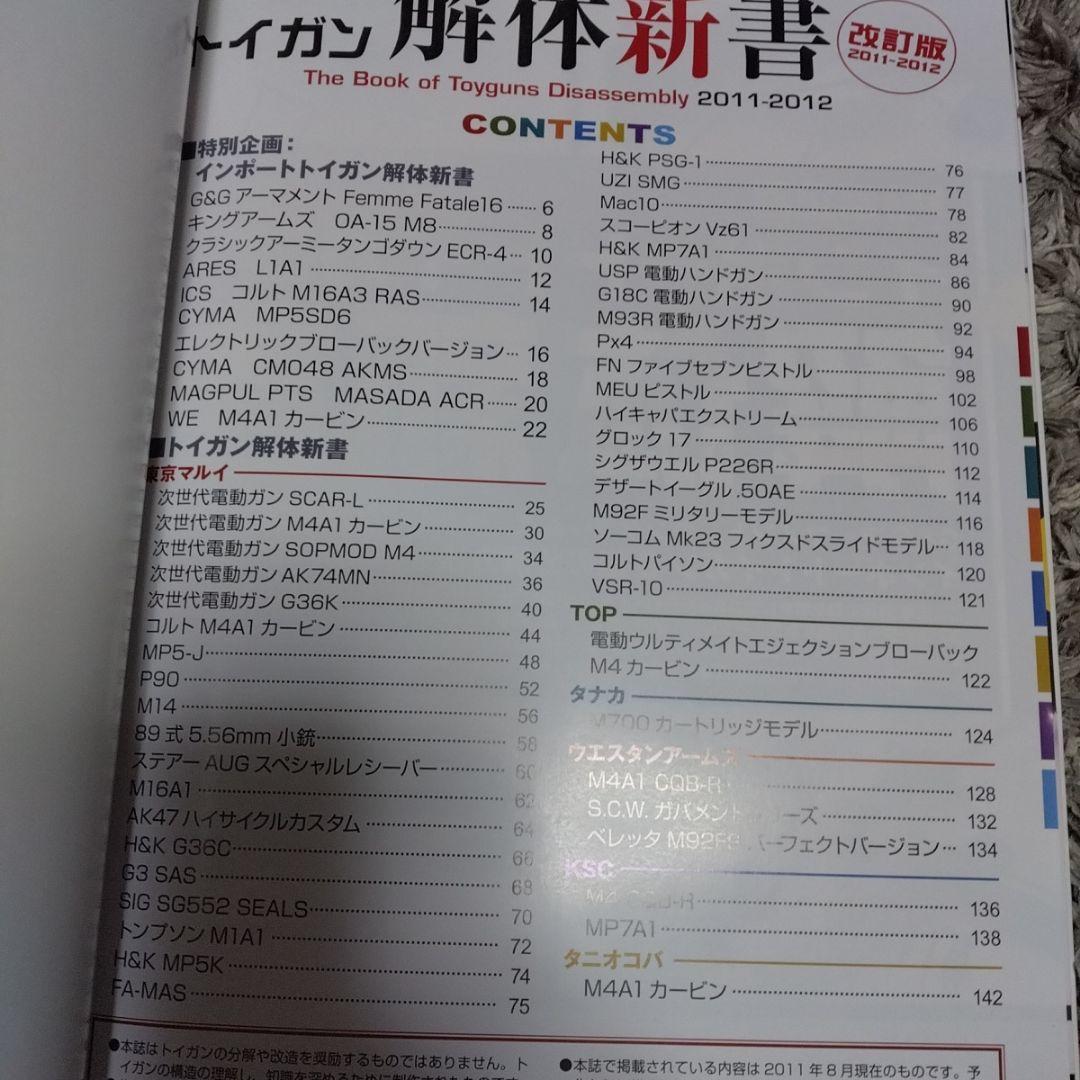 トイガン 解体新書 改訂版 2011-2012
The Book of Toyguns Disassembly 2011-2012
CONTENTS
■特別企画:
インポートトイガン解体新書
G&G アーマメント Femme Fatale16 …… 6
キングアームズ OA-15 M8 …… 8
クラシックアーミータンゴダウン ECR-4 … 10
ARES L1A1 …… 12
ICS コルト M16A3 RAS …… 14
CYMA MP5SD6
エレクトリックブローバックバージョン … 16
CYMA CM048 AKMS …… 18
MAGPUL PTS MASADA ACR …… 20
WE M4A1 カービン …… 22
■トイガン解体新書
東京マルイ
次世代電動ガン SCAR-L …… 25
次世代電動ガン M4A1 カービン …… 30
次世代電動ガン SOPMOD M4 …… 34
次世代電動ガン AK74MN …… 36
次世代電動ガン G36K …… 40
コルト M4A1 カービン …… 44
MP5-J …… 48
P90 …… 52
M14 …… 56
89 式 5.56mm 小銃 …… 58
ステアー AUG スペシャルレシーバー …… 60
M16A1 …… 62
AK47 ハイサイクルカスタム …… 64
H&K G36C …… 66
G3 SAS …… 68
SIG SG552 SEALS …… 70
トンプソン M1A1 …… 72
H&K MP5K …… 74
FA-MAS …… 75
H&K PSG-1 …… 76
UZI SMG …… 77
Mac10 …… 78
スコーピオン Vz61 …… 82
H&K MP7A1 …… 84
USP 電動ハンドガン …… 86
G18C 電動ハンドガン …… 90
M93R 電動ハンドガン …… 92
Px4 …… 94
FN ファイブセブンピストル …… 98
MEU ピストル …… 102
ハイキャパエクストリーム …… 106
グロック 17 …… 110
シグザウエル P226R …… 112
デザートイーグル .50AE …… 114
M92F ミリタリーモデル …… 116
ソーコム Mk23 フィクスドスライドモデル … 118
コルトパイソン …… 120
VSR-10 …… 121
TOP
電動ウルティメイトエジェクションブローバック
M4 カービン …… 122
タナカ
M700 カートリッジモデル …… 124
ウエスタンアームズ
M4A1 CQB-R …… 128
S.C.W. ガバメントシリーズ …… 132
ベレッタ M92FS パーフェクトバージョン … 134
KSC
M4 CQB-R …… 136
MP7A1 …… 138
タニオコバ
M4A1 カービン …… 142
●本誌はトイガンの分解や改造を奨励するものではありません。ト
イガンの構造の理解し、知識を深めるために制作されたものです
●本誌で掲載されている内容は 2011 年 8 月現在のものです。予